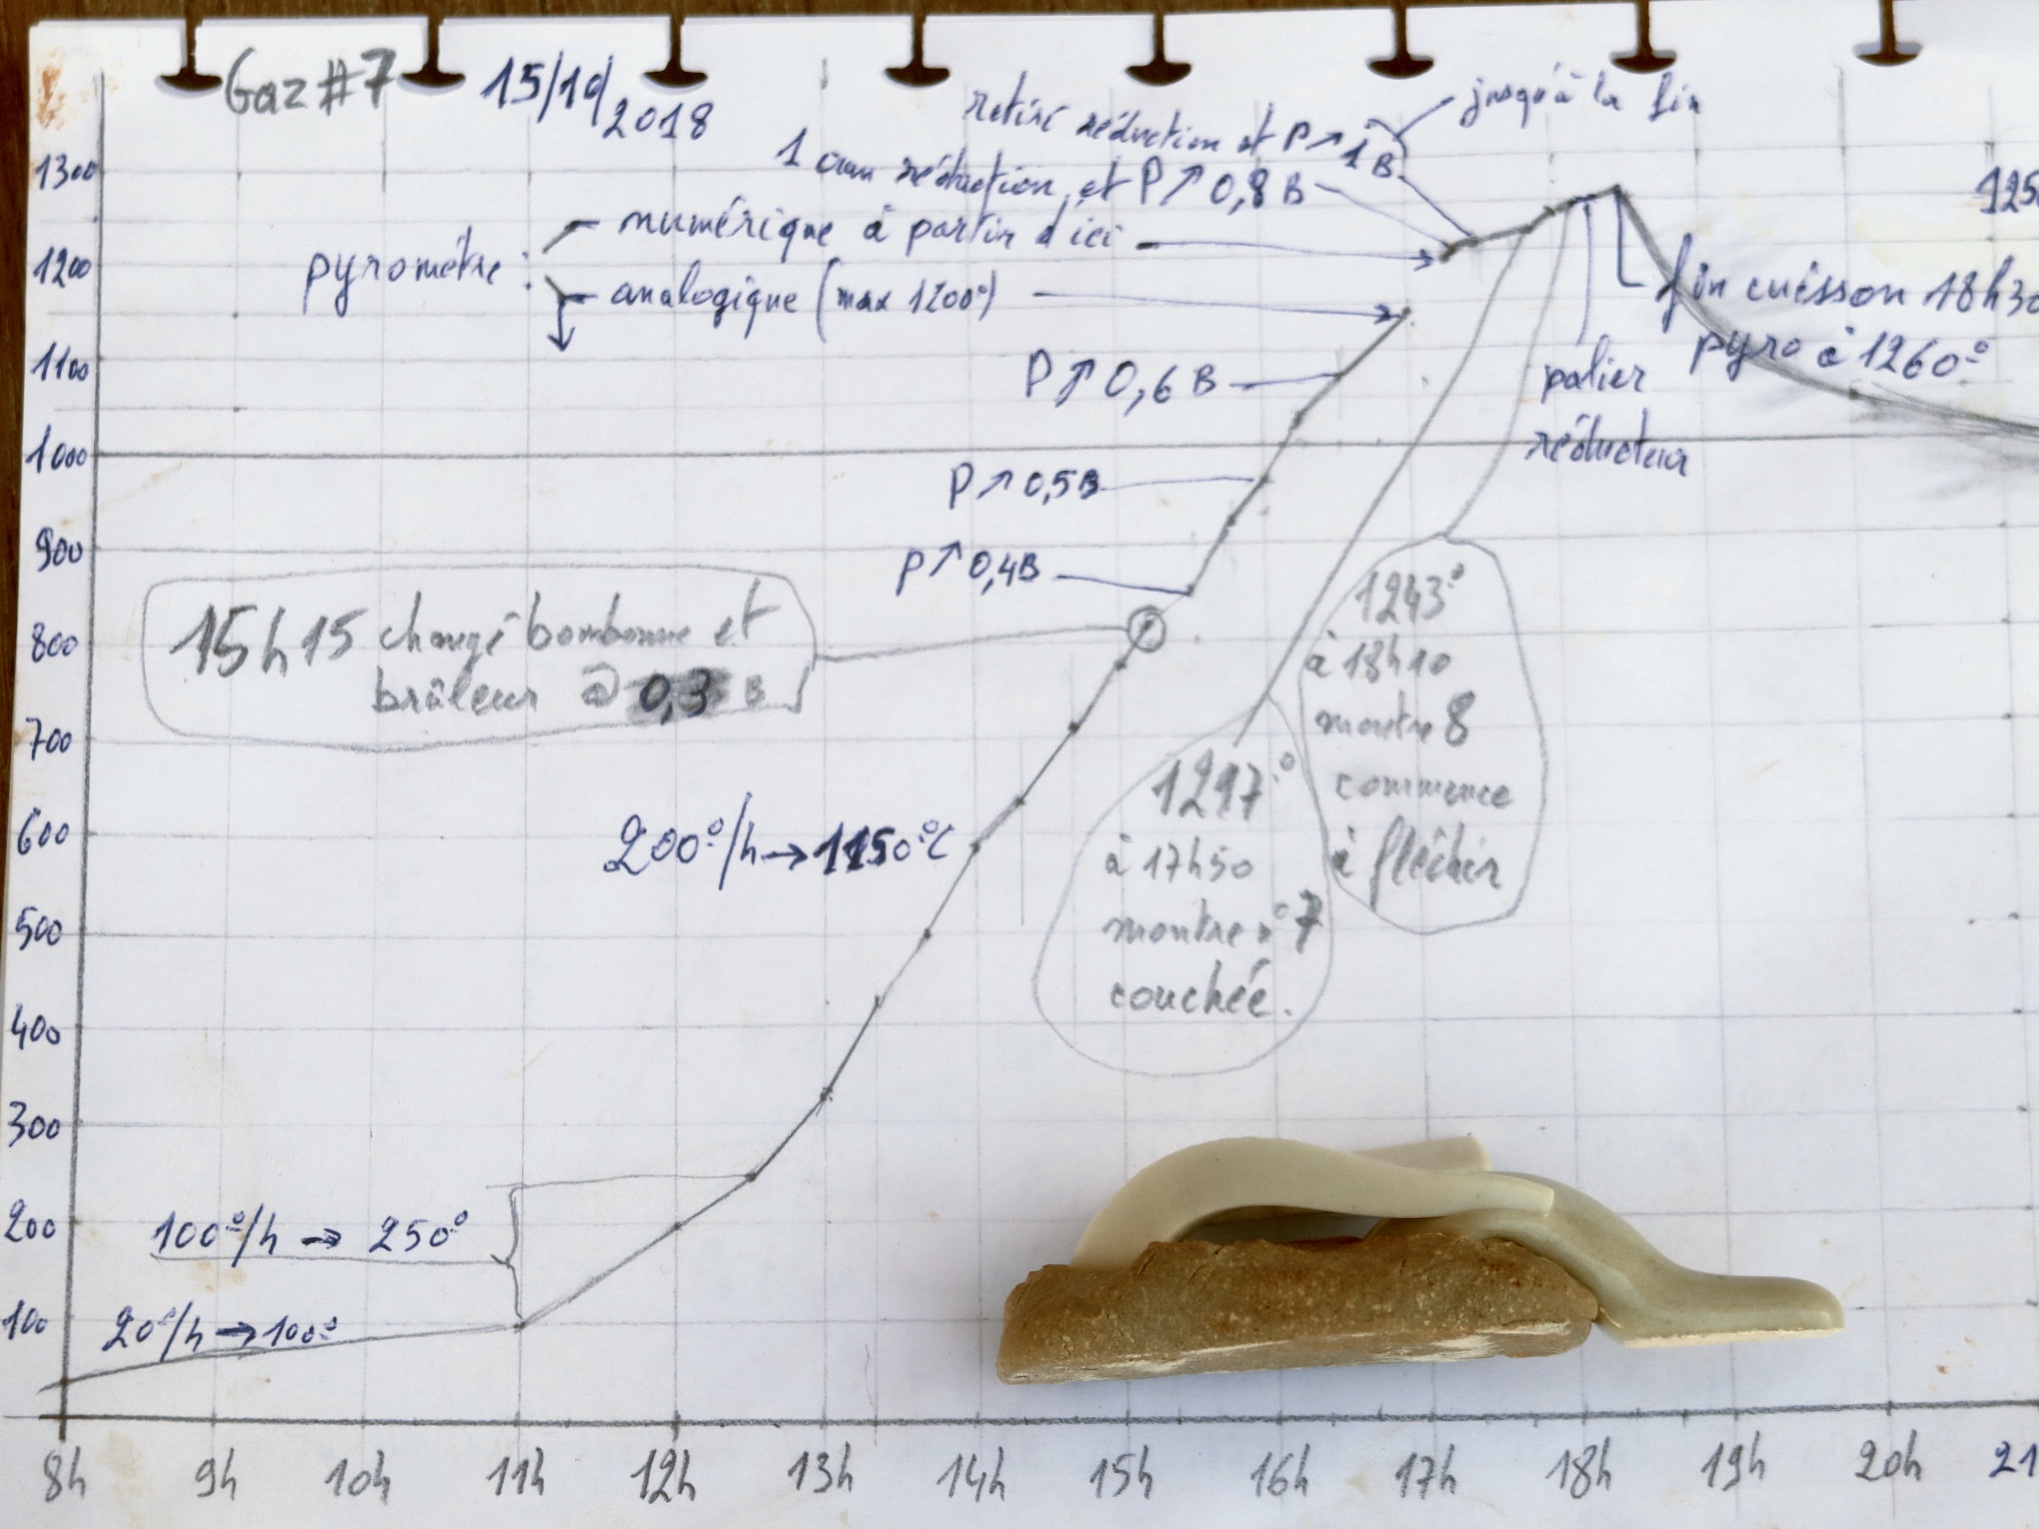 Gaz #7 15/10/2018
retiré réduction et P↗1B. jusqu'à la fin
1 cran réduction et P↗0,8 B
pyromètre : numérique à partir d'ici
analogique (max 1200°)
fin cuisson 18h30
pyro à 1260°
palier
réducteur
P↗0,6 B
P↗0,5B
P↗0,4B
15h15 changé bombonne et
brûleur @ 0,3 B
1243°
à 18h10
montre 8
commence
à fléchir
1217°
à 17h50
montre n°7
couchée.
200°/h→1150°C
100°/h → 250°
20°/h→100°
1300
1200
1100
1000
900
800
700
600
500
400
300
200
100
8h 9h 10h 11h 12h 13h 14h 15h 16h 17h 18h 19h 20h 21